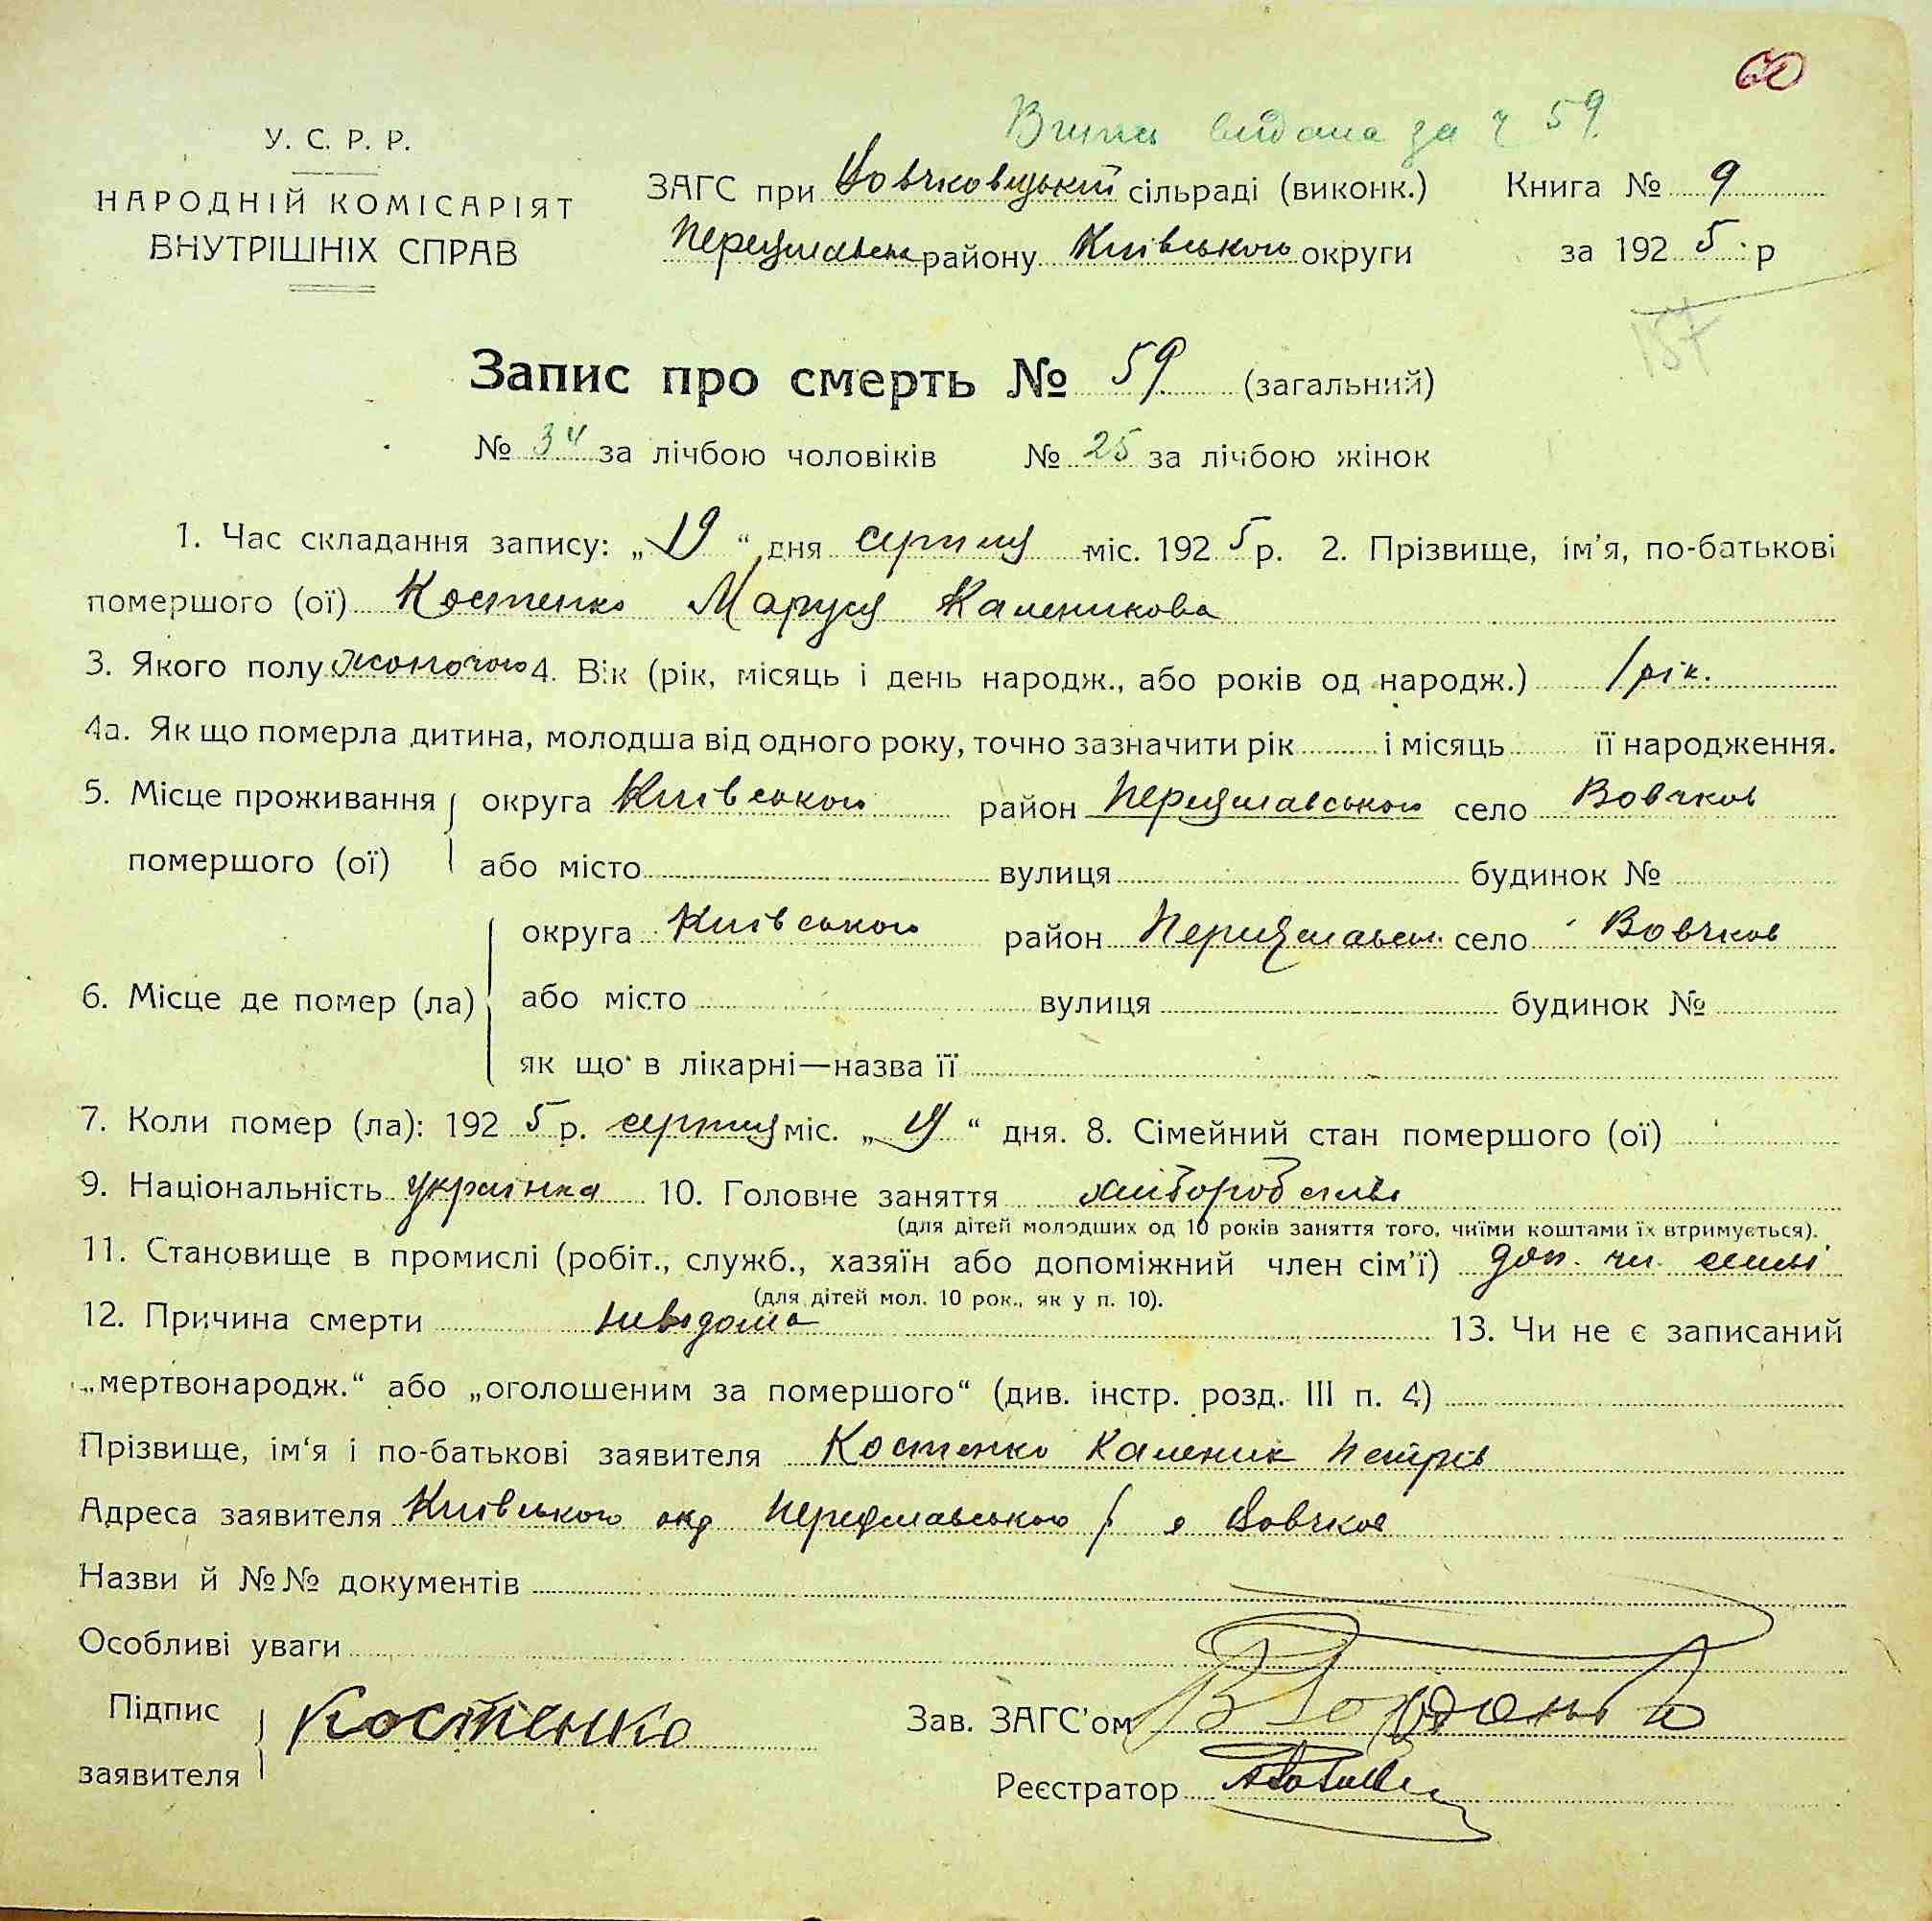 60
Випись видана за ч 59.
У. С. Р. Р.
НАРОДНІЙ КОМІСАРІЯТ
ВНУТРІШНІХ СПРАВ
ЗАГС при Вовчковицькій сільраді (виконк.) Книга № 9
Переяславськ району Київського округи за 192 5 р
157
Запис про смерть № 59 (загальний)
№ 34 за лічбою чоловіків № 25 за лічбою жінок
1. Час складання запису: „19“ дня серпня міс. 192 5 р. 2. Прізвище, ім’я, по-батькові
помершого (ої) Костенко Маруся Каленикова
3. Якого полу жоночого 4. Вік (рік, місяць і день народж., або років од народж.) 1 рік.
4а. Як що померла дитина, молодша від одного року, точно зазначити рік і місяць її народження.
5. Місце проживання округа Київського район Переяславського село Вовчков
помершого (ої) або місто вулиця будинок №
округа Київського район Переяславськ. село Вовчков
6. Місце де помер (ла) або місто вулиця будинок №
як що в лікарні—назва її
7. Коли помер (ла): 192 5 р. серпня міс. „19“ дня. 8. Сімейний стан помершого (ої)
9. Національність українка 10. Головне заняття хліборобство
(для дітей молодших од 10 років заняття того, чиїми коштами їх втримується).
11. Становище в промислі (робіт., служб., хазяїн або допоміжний член сім’ї) доп. чл. семьі
(для дітей мол. 10 рок., як у п. 10).
12. Причина смерти невідома 13. Чи не є записаний
„мертвонародж.“ або „оголошеним за помершого“ (див. інстр. розд. III п. 4)
Прізвище, ім‘я і по-батькові заявителя Костенко Каленик Петрів
Адреса заявителя Київського окр Переяславського р с Вовчков
Назви й №№ документів
Особливі уваги
Підпис заявителя Костенко Зав. ЗАГС’ом
Реєстратор